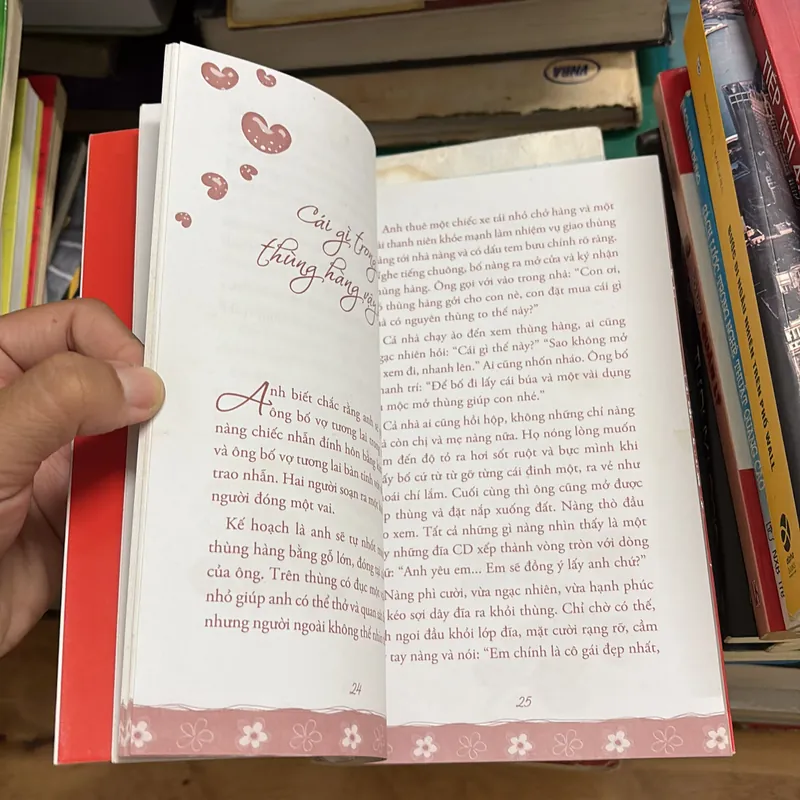 Cái gì trong
thùng hàng vậy
Anh biết chắc rằng anh
ông bố vợ tương lai
nàng chiếc nhẫn đính hôn bằng
và ông bố vợ tương lai bàn tính
trao nhẫn. Hai người soạn ra
người đóng một vai.
Kế hoạch là anh sẽ tự nhốt
thùng hàng bằng gỗ lớn, đóng
của ông. Trên thùng có đục một
nhỏ giúp anh có thể thở và quan
nhưng người ngoài không thể
24
Anh thuê một chiếc xe tải nhỏ chở hàng và một
thanh niên khỏe mạnh làm nhiệm vụ giao thùng
tới nhà nàng và có dấu tem bưu chính rõ ràng.
Nghe tiếng chuông, bố nàng ra mở cửa và ký nhận
thùng hàng. Ông gọi với vào trong nhà: “Con ơi,
thùng hàng gởi cho con nè, con đặt mua cái gì
mà có nguyên thùng to thế này?”
Cả nhà chạy ào đến xem thùng hàng, ai cũng
ngạc nhiên hỏi: “Cái gì thế này?” “Sao không mở
xem đi, nhanh lên.” Ai cũng nhốn nháo. Ông bố
thanh trí: “Để bố đi lấy cái búa và một vài dụng
mộc mở thùng giúp con nhé.”
Cả nhà ai cũng hồi hộp, không những chỉ nàng
còn chị và mẹ nàng nữa. Họ nóng lòng muốn
đến độ tỏ ra hơi sốt ruột và bực mình khi
thấy bố cứ từ từ gỡ từng cái đinh một, ra vẻ như
khoái chí lắm. Cuối cùng thì ông cũng mở được
nắp thùng và đặt nắp xuống đất. Nàng thò đầu
vào xem. Tất cả những gì nàng nhìn thấy là một
những đĩa CD xếp thành vòng tròn với dòng
chữ: “Anh yêu em... Em sẽ đồng ý lấy anh chứ?”
Nàng phì cười, vừa ngạc nhiên, vừa hạnh phúc
kéo sợi dây đĩa ra khỏi thùng. Chỉ chờ có thế,
anh ngoi đầu khỏi lớp đĩa, mặt cười rạng rỡ, cầm
tay nàng và nói: “Em chính là cô gái đẹp nhất,
25
VNRA
TIẾP THỊ
BƯỚC ĐI NGẪU NHIÊN TRÊN PHỐ WALL